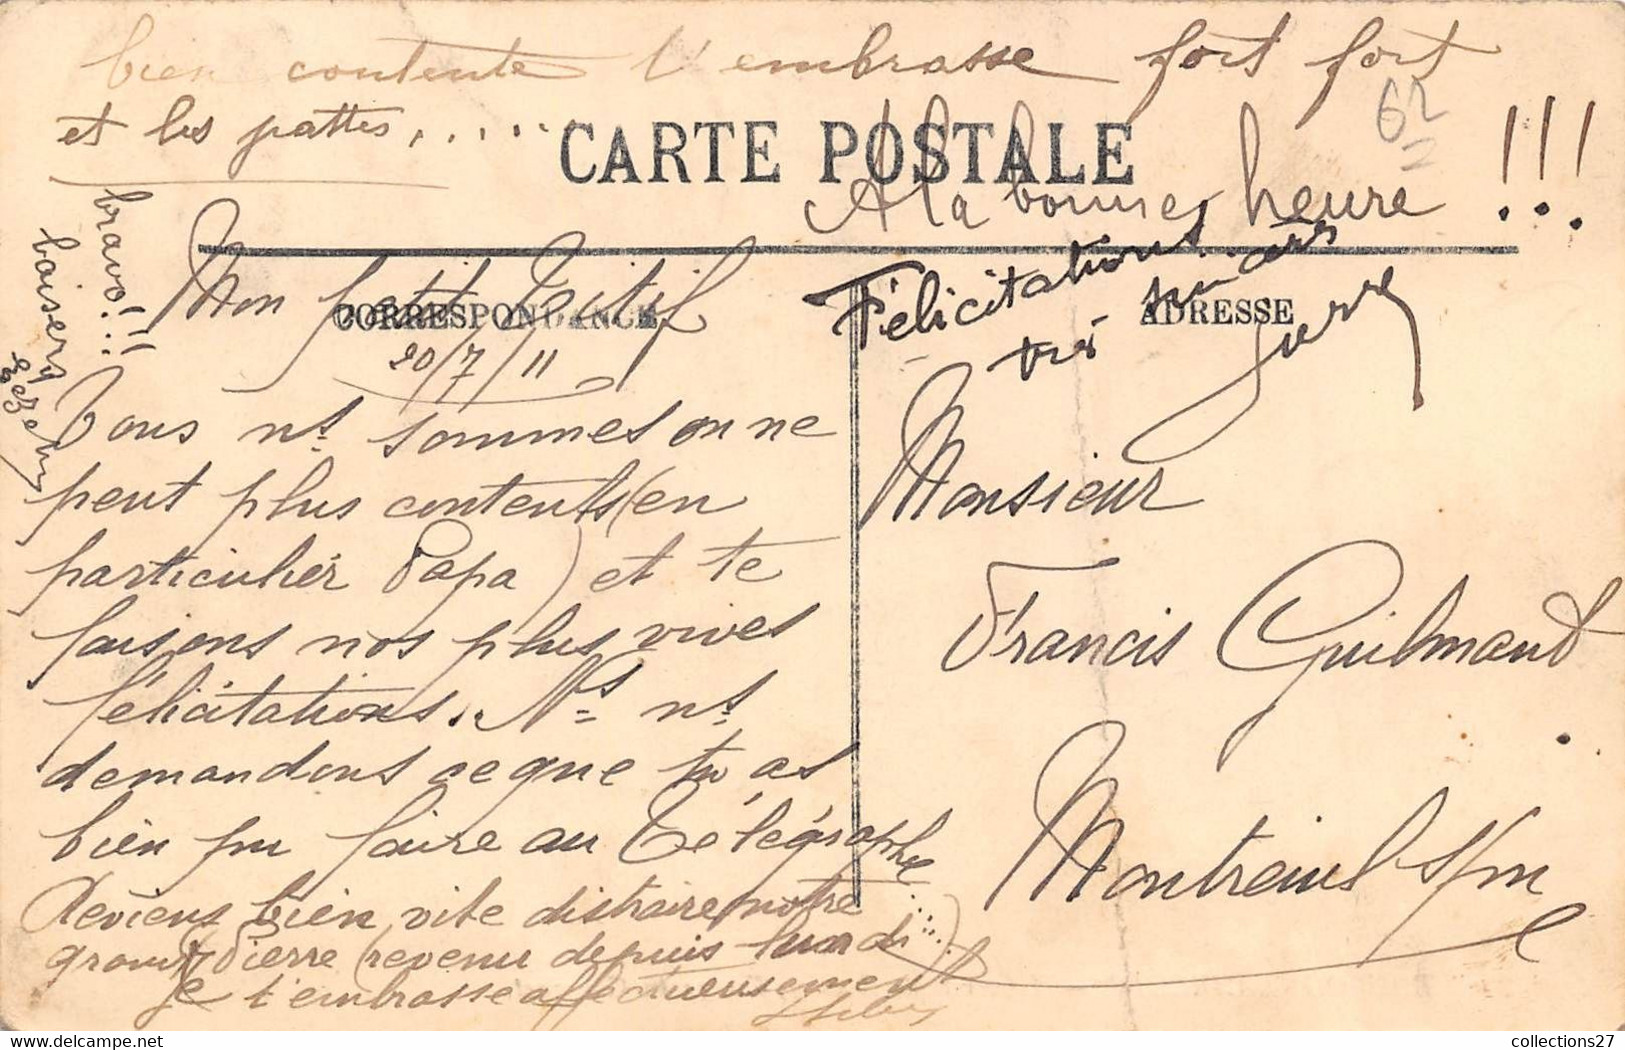 bien contente t'embrasse fort fort
et les pattes, .....
62
CARTE POSTALE
A la bonne heure !!!
bravo!!!
baisers
Félicitations
très
Pierre
CORRESPONDANCE
ADRESSE
Mon petit
20/7/11
Tous ns sommes on ne
peut plus contents (en
particulier Papa) et te
faisons nos plus vives
félicitations. Ns ns
demandons ce que tu as
bien pu faire au Télégraphe
Reviens bien vite distraire notre
grand Pierre (revenu depuis lundi)
Je t'embrasse affectueusement
Monsieur
Francis Guilmant
Montreuil s/m
collections27